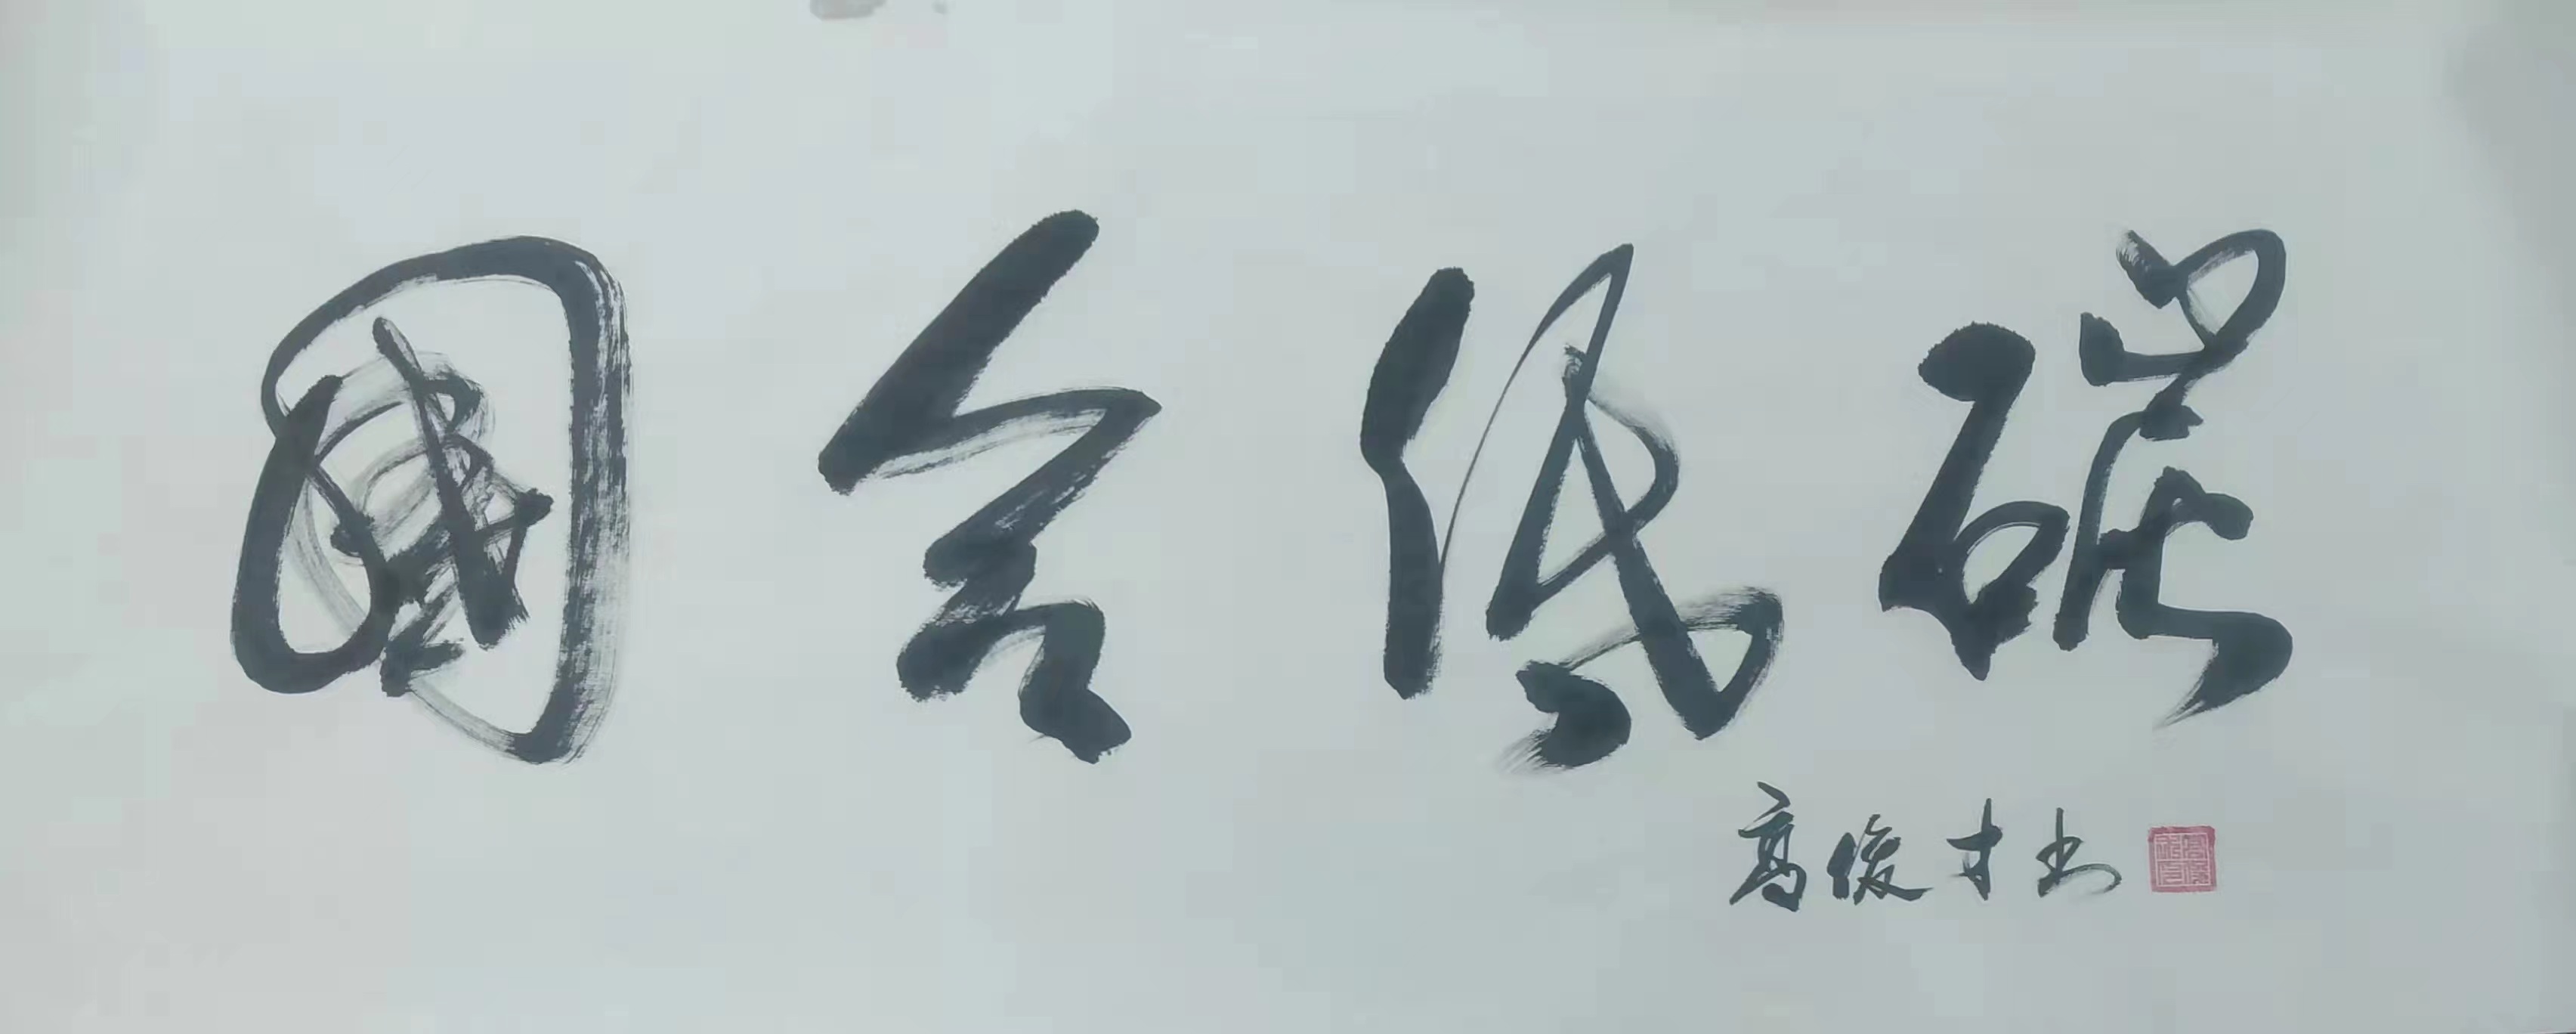 國合低碳
高俊才书